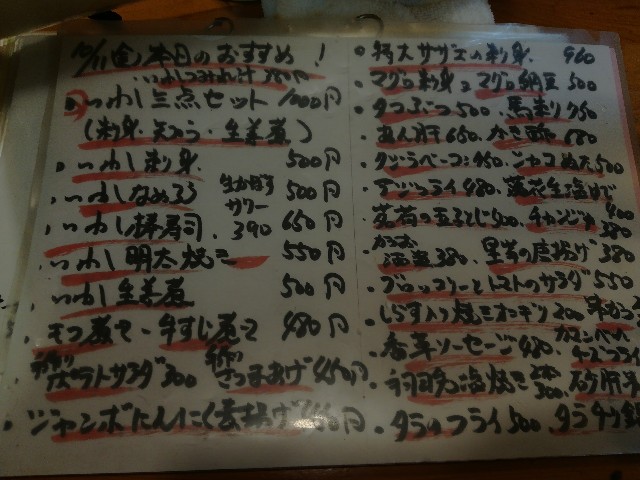 10/11(金)本日のおすすめ!
いわしつみれ汁 380円
いわし三点セット 1000円
(刺身・天ぷら・生姜煮)
いわし刺身 500円
いわしなめろう 500円
生かぼす
サワー
390
いわし棒寿司 650円
いわし明太焼き 550円
いわし生姜煮 500円
もつ煮こみ・牛すじ煮こみ 480円
手作り
ポテトサラダ 300
手作り
さつまあげ 450円
ジャンボにんにく素揚げ
特大サザエの刺身 960
マグロ刺身 マグロ納豆 500
タコぶつ 500 馬刺り 750
あん肝 650 かき酢 680
クジラベーコン 950 ジャコ
アジフライ 480 落花生塩ゆで
400
茗荷の玉子とじ 400 チャンジャ 380
380 里芋の唐揚げ 380
ブロッコリーとトマトのサラダ 550
しらす入り焼きオニギリ 200
香草ソーセージ 480
カマンベール
チーズフライ
砂肝
タラのフライ 500